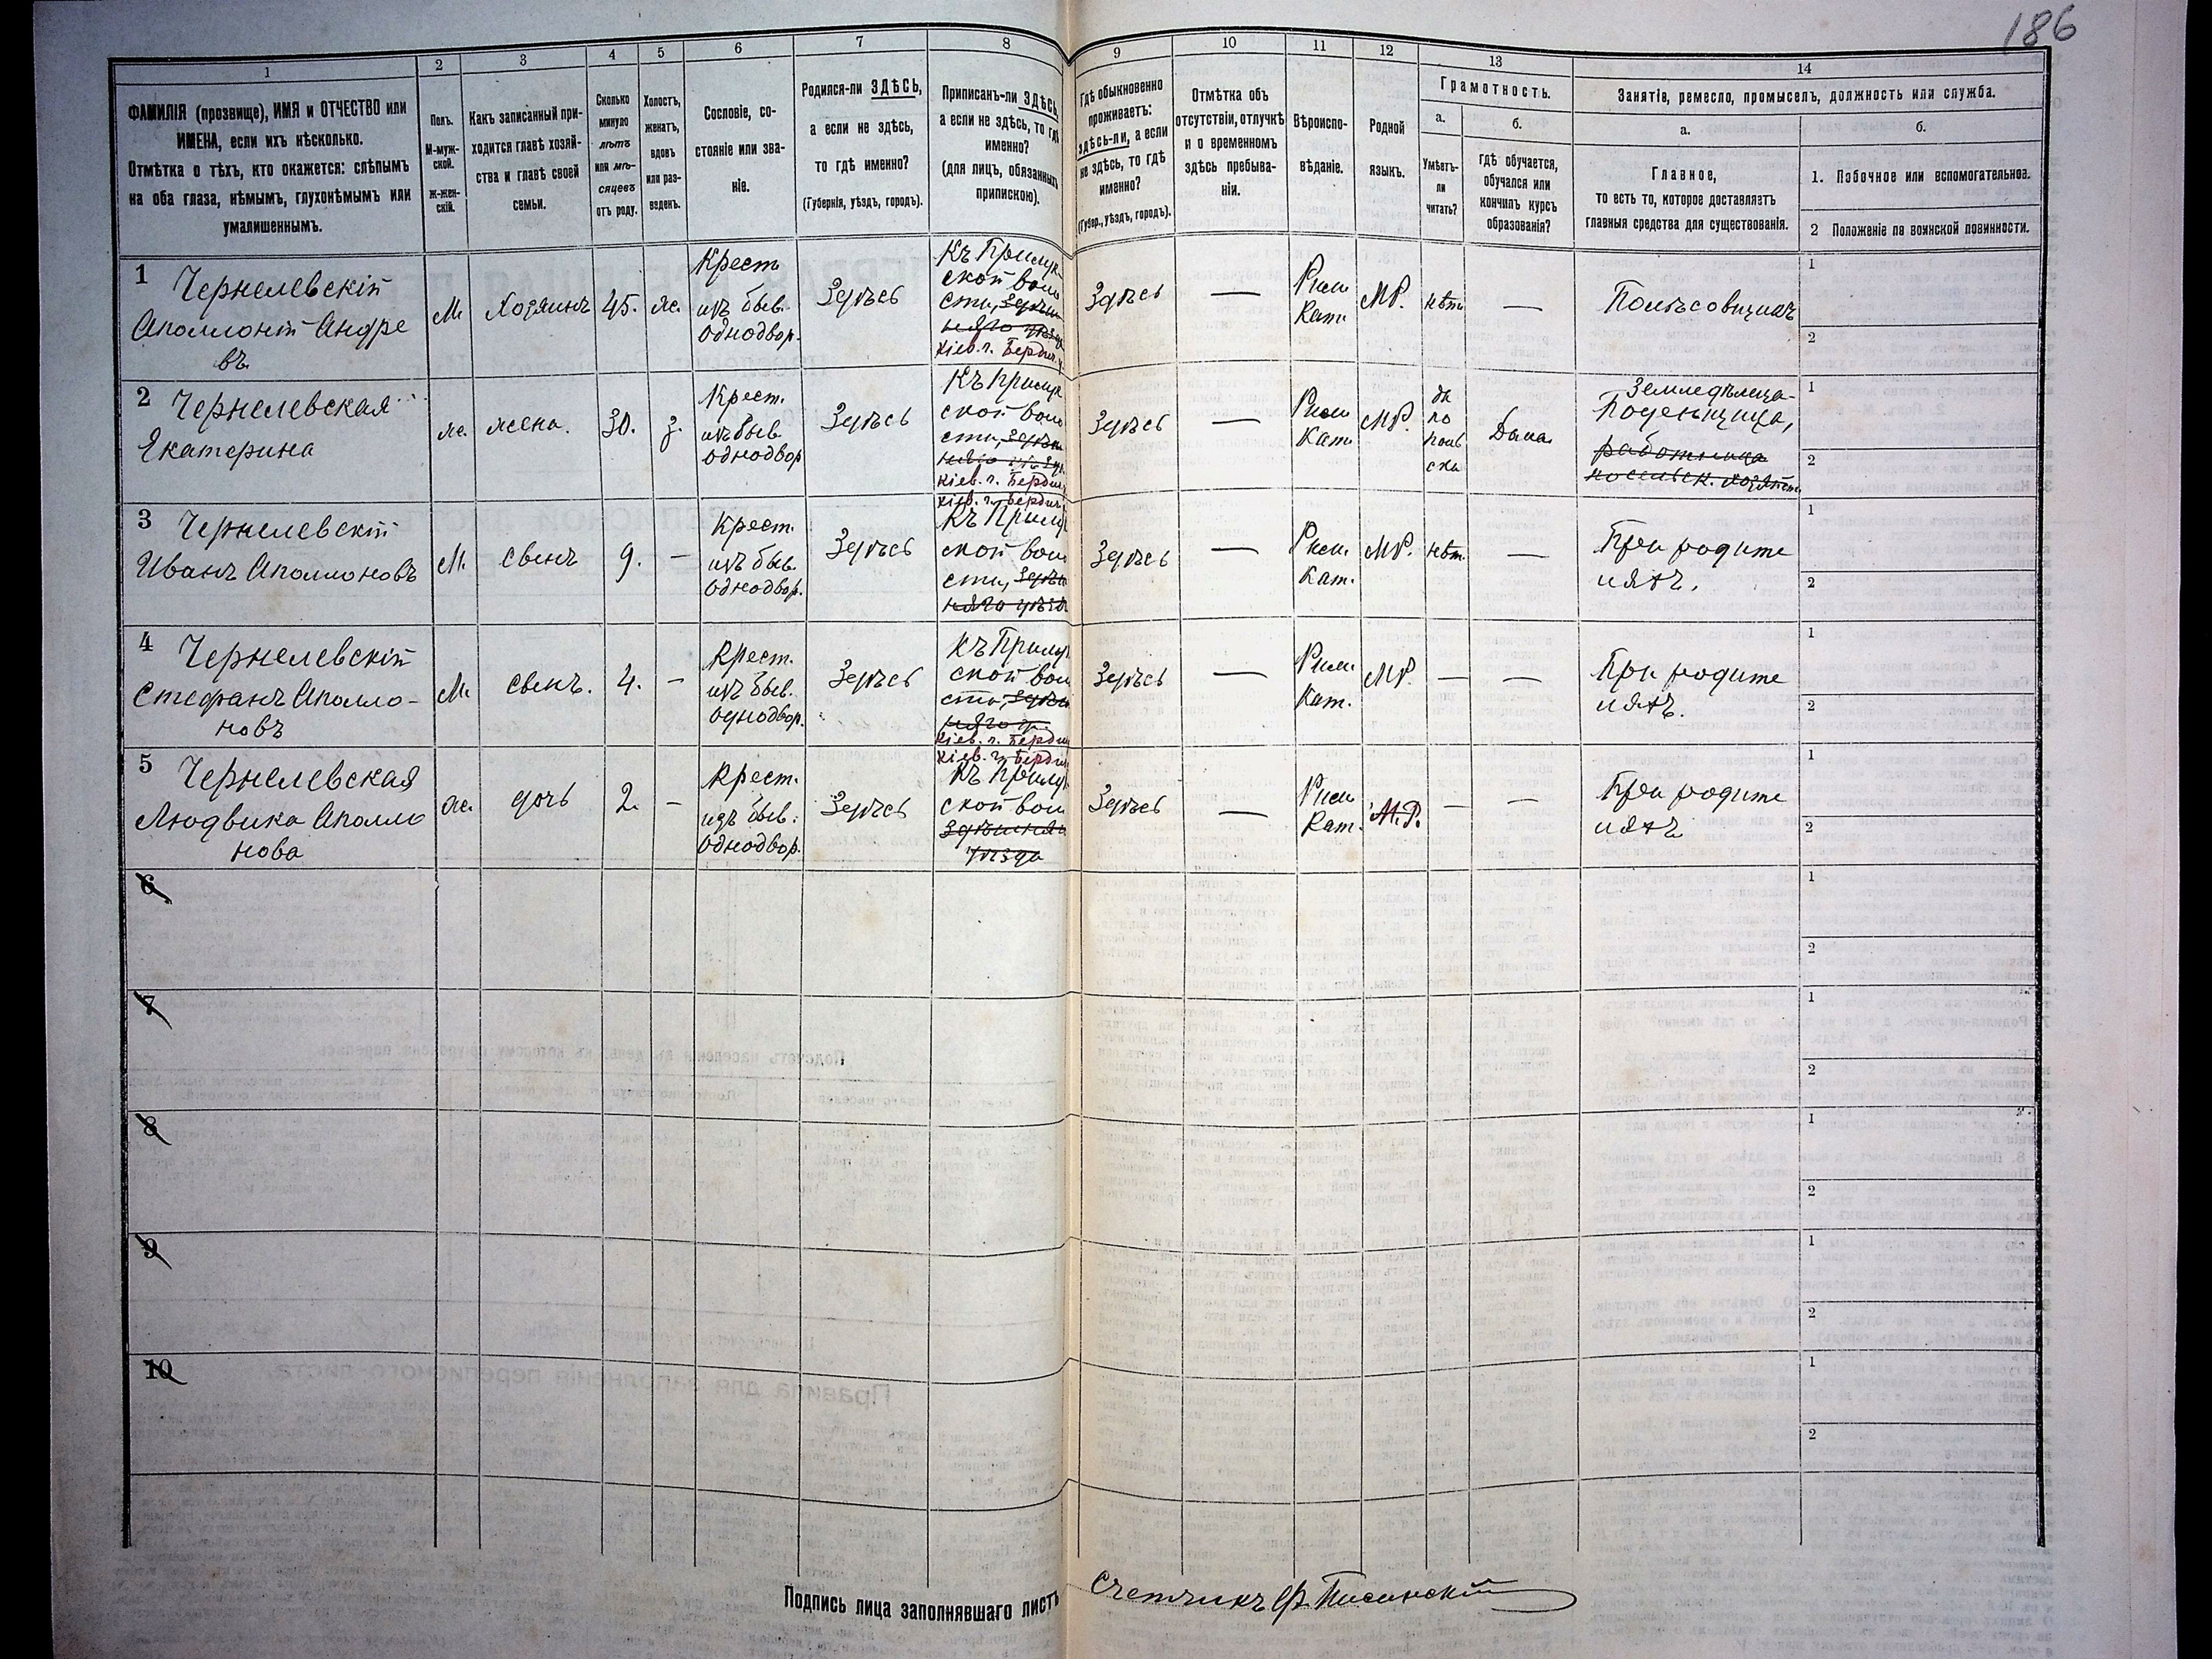 186
1
2
3
4
5
6
7
8
9
10
11
12
13
14
ФАМИЛІЯ (прозвище), ИМЯ и ОТЧЕСТВО или
ИМЕНА, если ихъ нѣсколько.
Отмѣтка о тѣхъ, кто окажется: слѣпымъ
на оба глаза, нѣмымъ, глухонѣмымъ или
умалишеннымъ.
Полъ.
М-муж-
ской.
Ж-жен-
скій.
Какъ записанный при-
ходится главѣ хозяй-
ства и главѣ своей
семьи.
Сколько
минуло
лѣтъ
или мѣ-
сяцевъ
отъ роду.
Холостъ,
женатъ,
вдовъ
или раз-
веденъ.
Сословіе, со-
стояніе или зва-
ніе.
Родился-ли ЗДѢСЬ,
а если не здѣсь,
то гдѣ именно?
(Губернія, уѣздъ, городъ).
Приписанъ-ли ЗДѢСЬ,
а если не здѣсь, то гдѣ
именно?
(для лицъ, обязанныхъ
припискою).
Гдѣ обыкновенно
проживаетъ:
здѣсь-ли, а если
не здѣсь, то гдѣ
именно?
(Губер., уѣздъ, городъ).
Отмѣтка объ
отсутствіи, отлучкѣ
и о временномъ
здѣсь пребыва-
ніи.
Вѣроиспо-
вѣданіе.
Родной
языкъ.
Грамотность.
а.
Умѣетъ-
ли
читать?
б.
гдѣ обучается,
обучался или
кончилъ курсъ
образованія?
Занятія, ремесло, промыселъ, должность или служба.
а.
Главное,
то есть то, которое доставляетъ
главныя средства для существованія.
б.
1. Побочное или вспомогательное.
2 Положеніе по воинской повинности.
1
Чернелевскій
Аполлоній Андре
въ
М.
Хозяинъ
45.
ж.
Крест.
изъ быв.
однодвор.
Здѣсь
Къ Прилук
ской воло
сти, здѣш
няго уѣзда
Кіев. г. Бердич. у
Здѣсь
—
Рим.
Кат.
МР.
нѣтъ
—
Полѣсовщикъ
1
2
2
Чернелевская
Екатерина
ж.
жена.
30.
з.
Крест.
изъ быв.
однодвор.
Здѣсь
Къ Прилук
ской воло
сти, здѣш
няго уѣзд.
Кіев. г. Бердич.
Здѣсь
—
Рим.
Кат.
МР.
да
по
поль
ски
Дома
Земледѣлица-
Поденщица,
работница
по сельск. хозяйст.
1
2
3
Кіев. г. Бердич.
Чернелевскій
Иванъ Аполлоновъ
М.
сынъ
9.
—
Крест.
изъ быв.
однодвор.
Здѣсь
Къ Прилук
ской воло
сти, здѣш
няго уѣзда
Здѣсь
—
Рим.
Кат.
МР.
нѣтъ.
—
При родите
ляхъ.
1
2
4
Чернелевскій
Стефанъ Аполло-
новъ
М.
сынъ.
4.
—
Крест.
изъ быв.
однодвор.
Здѣсь
Къ Прилук
ской воло
сти, здѣш
няго у.
Кіев. г. Бердич
Здѣсь
—
Рим.
Кат.
МР.
—
—
При родите
ляхъ.
1
2
5
Кіев. г. Бердич
Чернелевская
Людвика Аполло
нова
ж.
дочь
2.
—
Крест.
изъ быв.
однодвор.
Здѣсь
Къ Прилук
ской вол.
здѣшняго
уѣзда
Здѣсь
—
Рим.
Кат.
М.Р.
—
—
При родите
ляхъ
1
2
6
1
2
7
1
2
8
1
2
9
1
2
10
1
2
Подпись лица заполнявшаго листъ
Счетчикъ